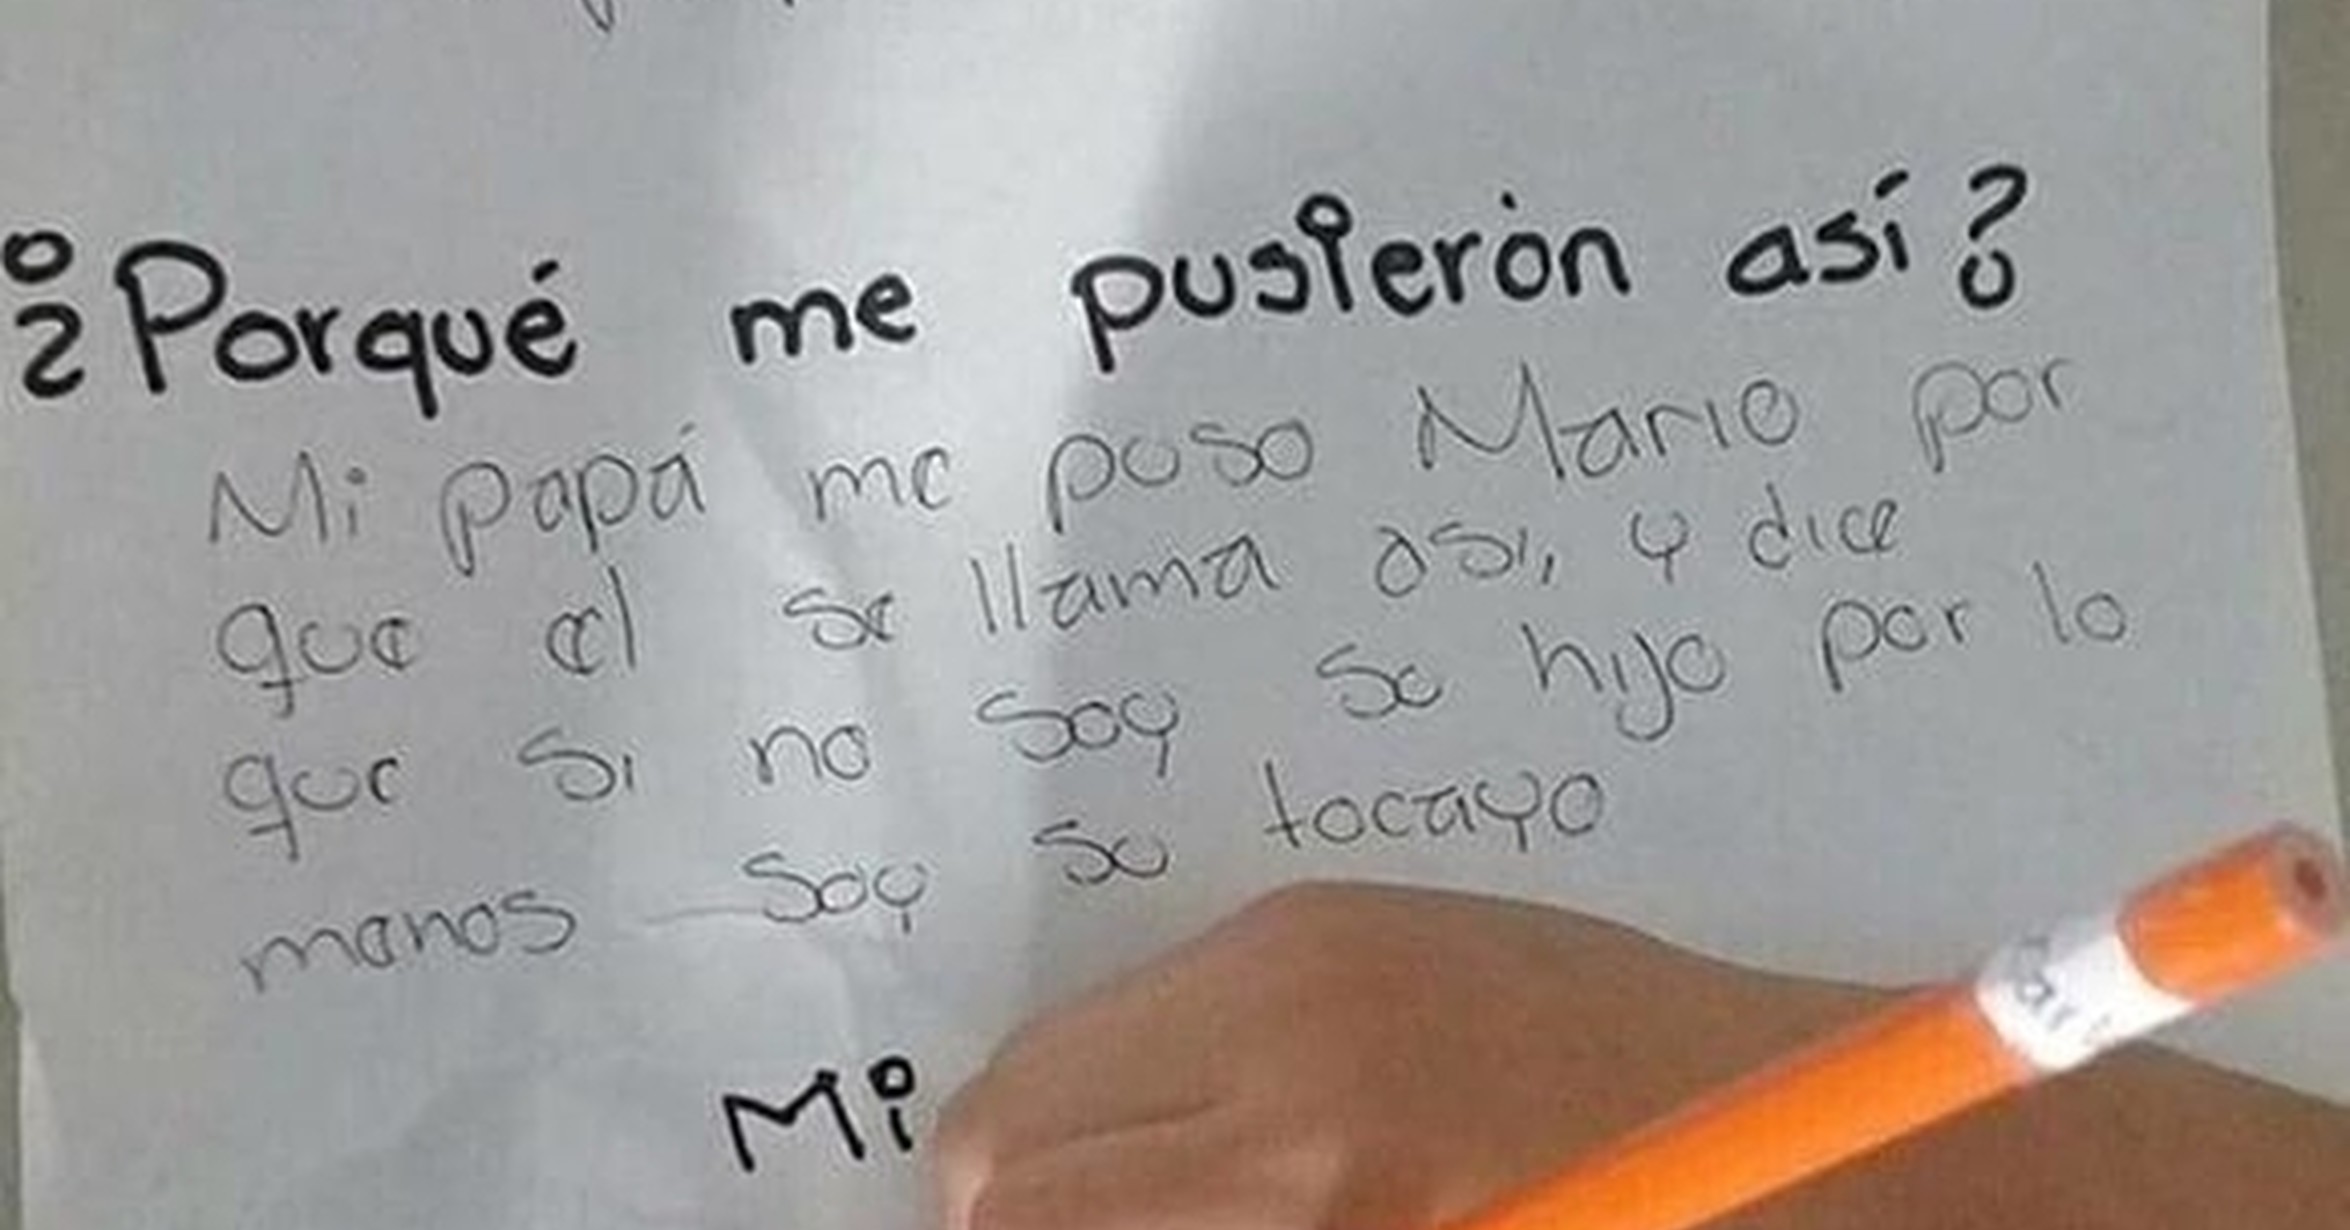 ¿Porqué me pusierón así?
Mi papá me puso Mario por
que el se llama asi, y dice
que si no soy su hijo por lo
menos soy su tocayo
Mi